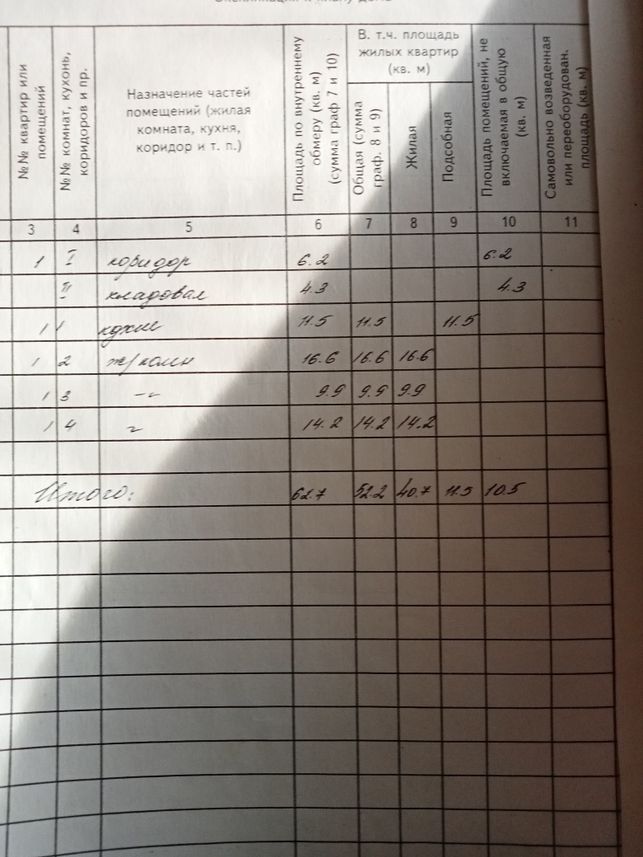 Экспликация к плану дома
№№ квартир или помещений
№№ комнат, кухонь, коридоров и пр.
Назначение частей помещений (жилая комната, кухня, коридор и т. п.)
Площадь по внутреннему обмеру (кв. м) (сумма граф 7 и 10)
В. т.ч. площадь жилых квартир (кв. м)
Общая (сумма граф. 8 и 9)
Жилая
Подсобная
Площадь помещений, не включаемая в общую (кв. м)
Самовольно возведенная или переоборудован. площадь (кв. м)
3 4 5 6 7 8 9 10 11
1 I коридор 6.2 6.2
II кладовая 4.3 4.3
1 1 кухне 11.5 11.5 11.5
1 2 ж/комн 16.6 16.6 16.6
1 3 -"- 9.9 9.9 9.9
1 4 " 14.2 14.2 14.2
Итого: 62.7 52.2 40.7 11.5 10.5